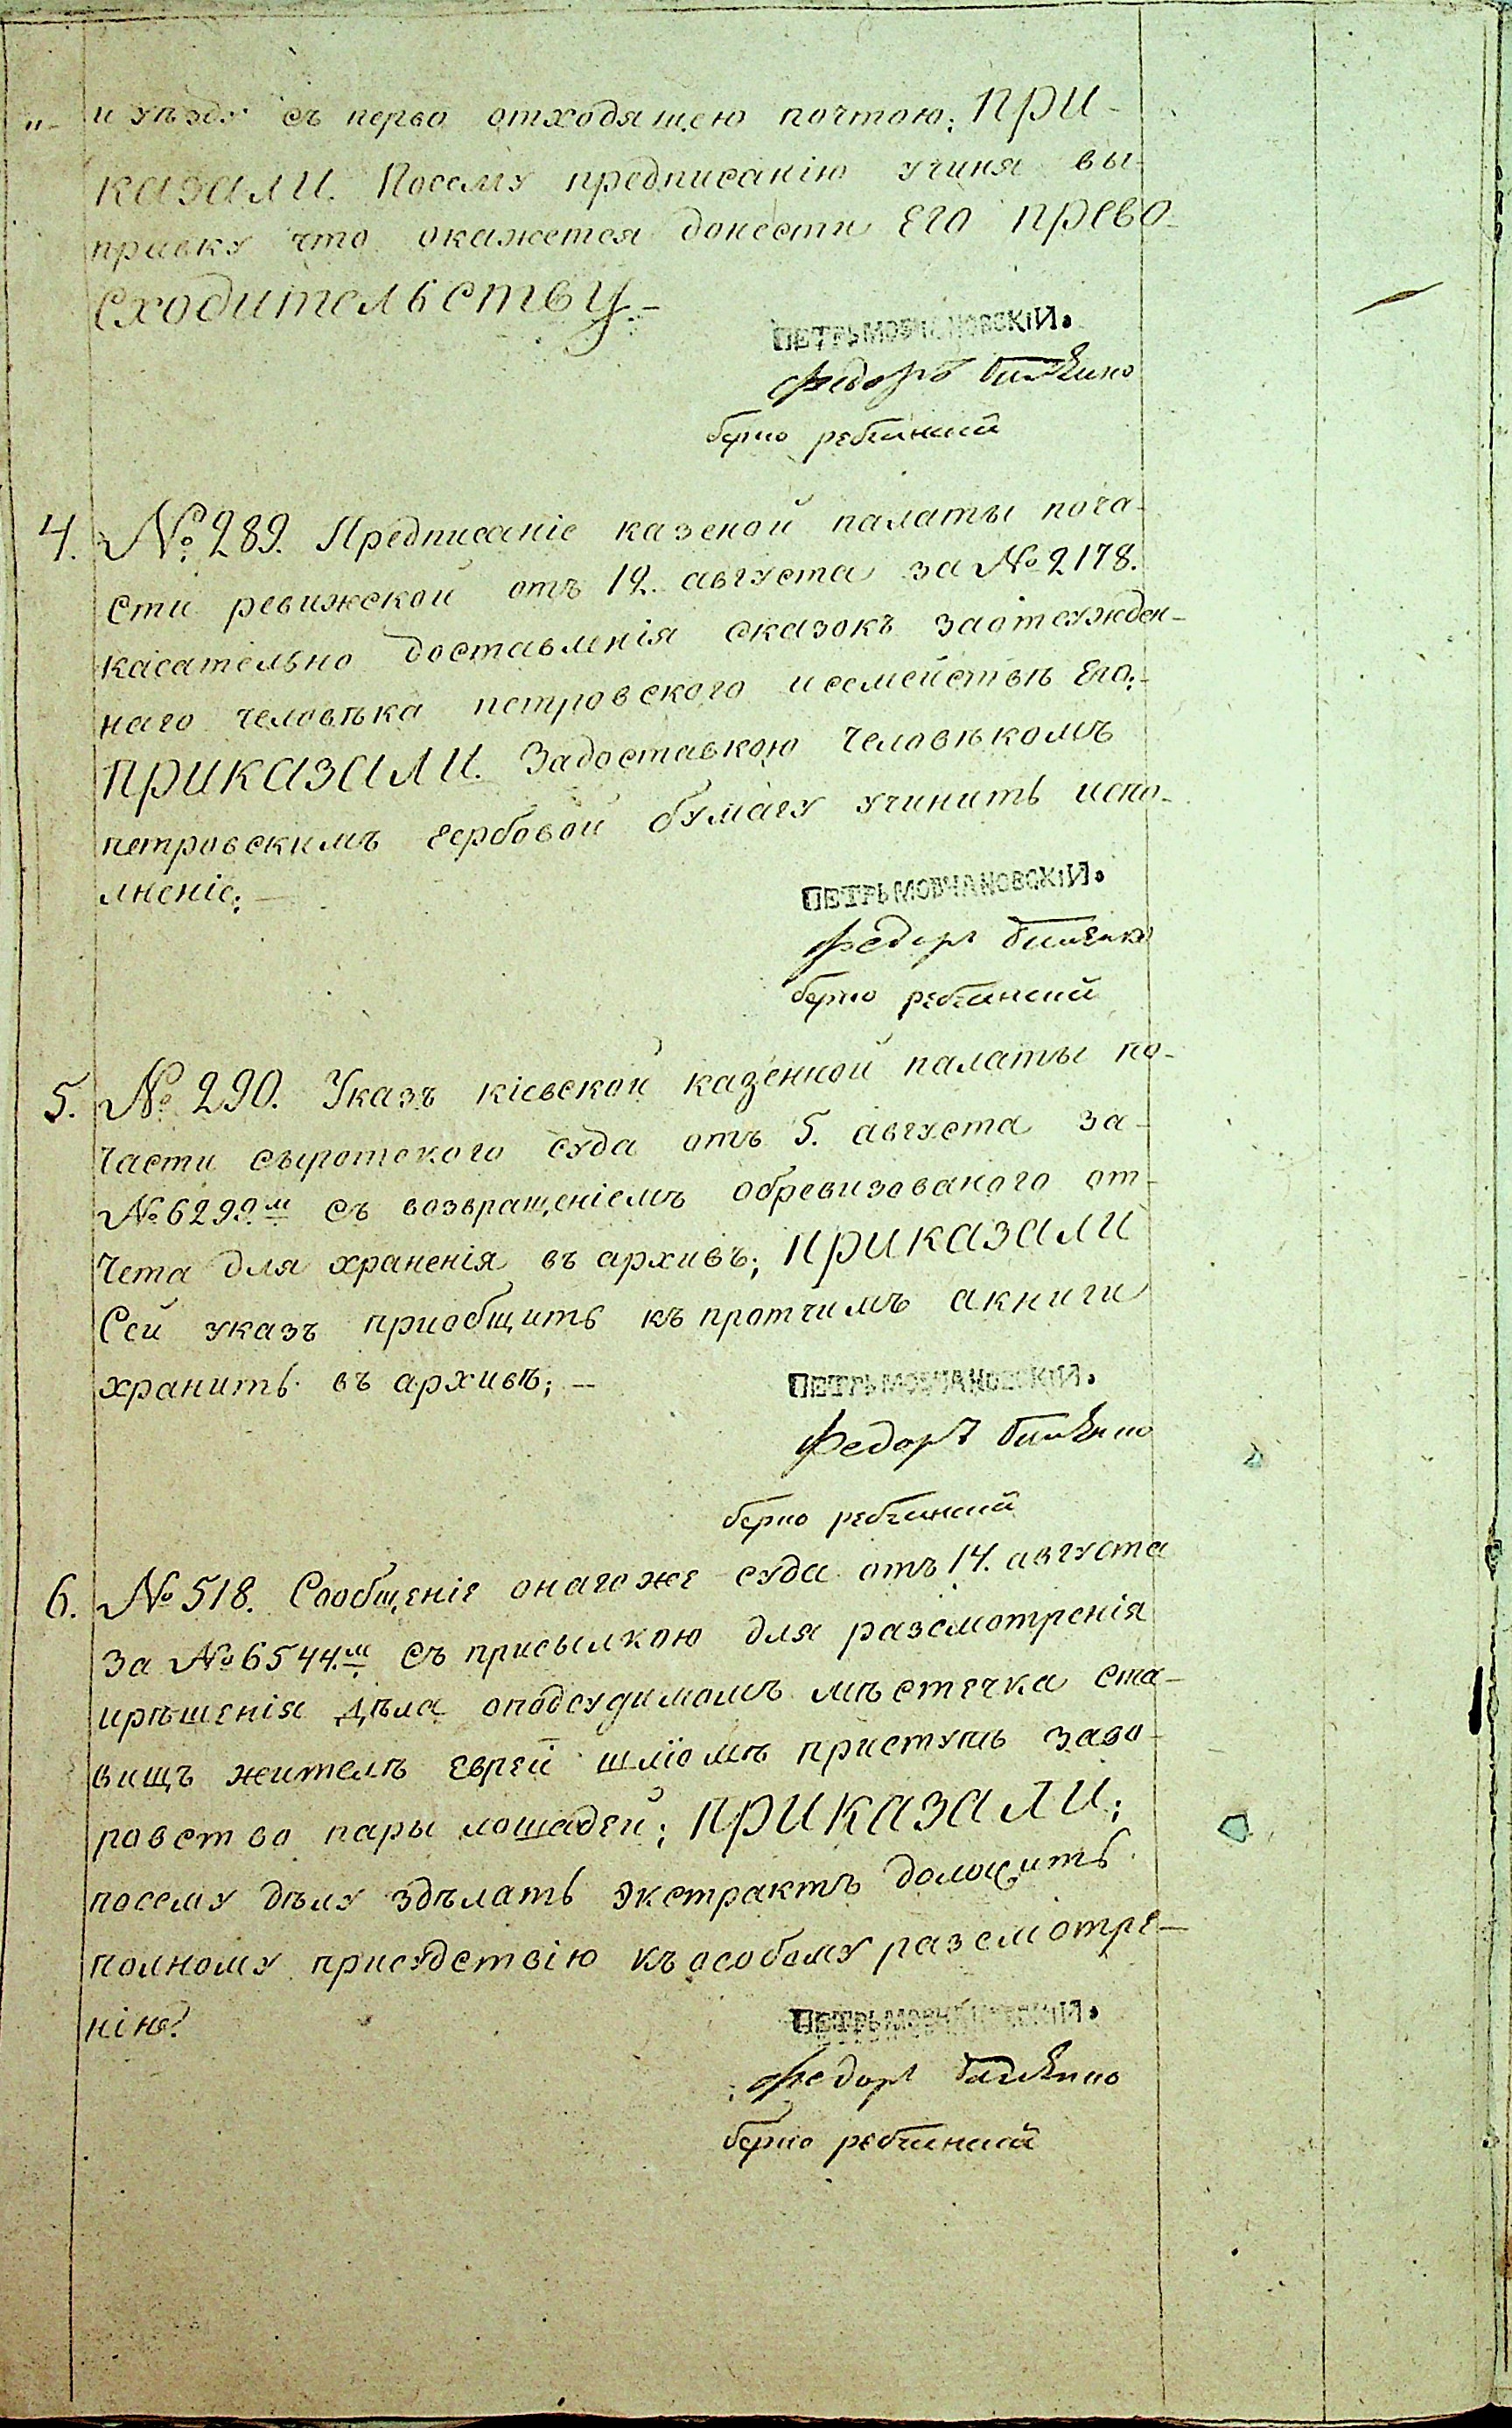 "- и уѣзду съ перво отходящею почтою; при-
казали. Посему предписанію учиня вы-
правку что окажется донести его прево-
сходительству.-
ПЕТРЬ МОВЧАНОВСКІЙ.
Федоръ
берко ребчинский
4. № 289. Предписаніе казеной палаты поча-
сти ревижской отъ 12. августа за № 2178.
касательно доставленія сказокъ заотсужден-
наго человѣка петровского исемействѣ его;-
приказали. Задоставкою человѣкомъ
петровскимъ гербовой бумагу учинить испо-
лненіе;-
ПЕТРЬ МОВЧАНОВСКІЙ.
Федоръ
берко ребчинский
5. № 290. Указъ кіевской казенной палаты по-
части сыротского суда отъ 5. августа за-
№ 6299.м съ возвращеніемъ обревизованого от-
чета для храненія въ архивъ; приказали
Сей указъ приобщить къ протчимъ акниги
хранить въ архивѣ; —
ПЕТРЬ МОВЧАНОВСКІЙ.
Федоръ
берко ребчинский
6. № 518. Сообщеніе онагоже суда отъ 14. августа
за № 6544.м съ присылкою для разсмотренія
ирѣшенія дѣла оподсудимомъ мѣстечка ста-
вищъ жителѣ еврей шліомѣ приступѣ заво-
ровство пары лошадей; приказали;
посему дѣлу здѣлать экстрактъ доложить
полному присудствію къ особому разсмотре-
нію.
ПЕТРЬ МОВЧАНОВСКІЙ.
Федоръ
берко ребчинский